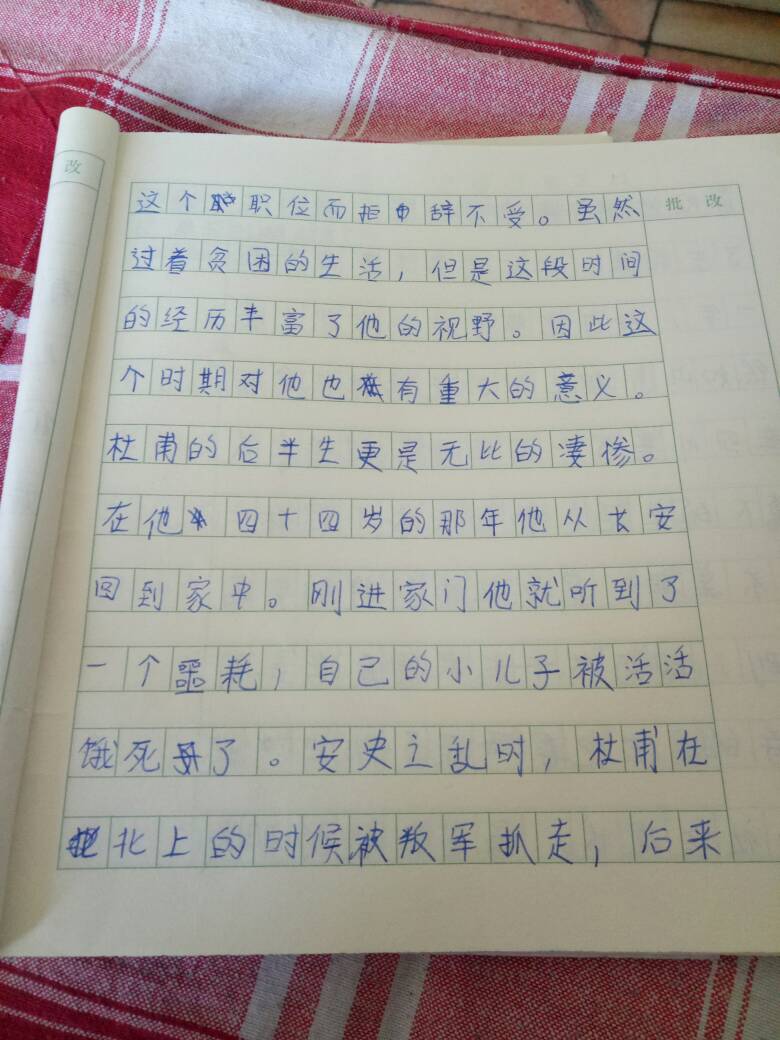 改
批 改
这个职位而拒辞不受。虽然
过着贫困的生活，但是这段时间
的经历丰富了他的视野。因此这
个时期对他也有重大的意义。
杜甫的后半生更是无比的凄惨。
在他四十四岁的那年他从长安
回到家中。刚进家门他就听到了
一个噩耗，自己的小儿子被活活
饿死了。安史之乱时，杜甫在
北上的时候被叛军抓走，后来